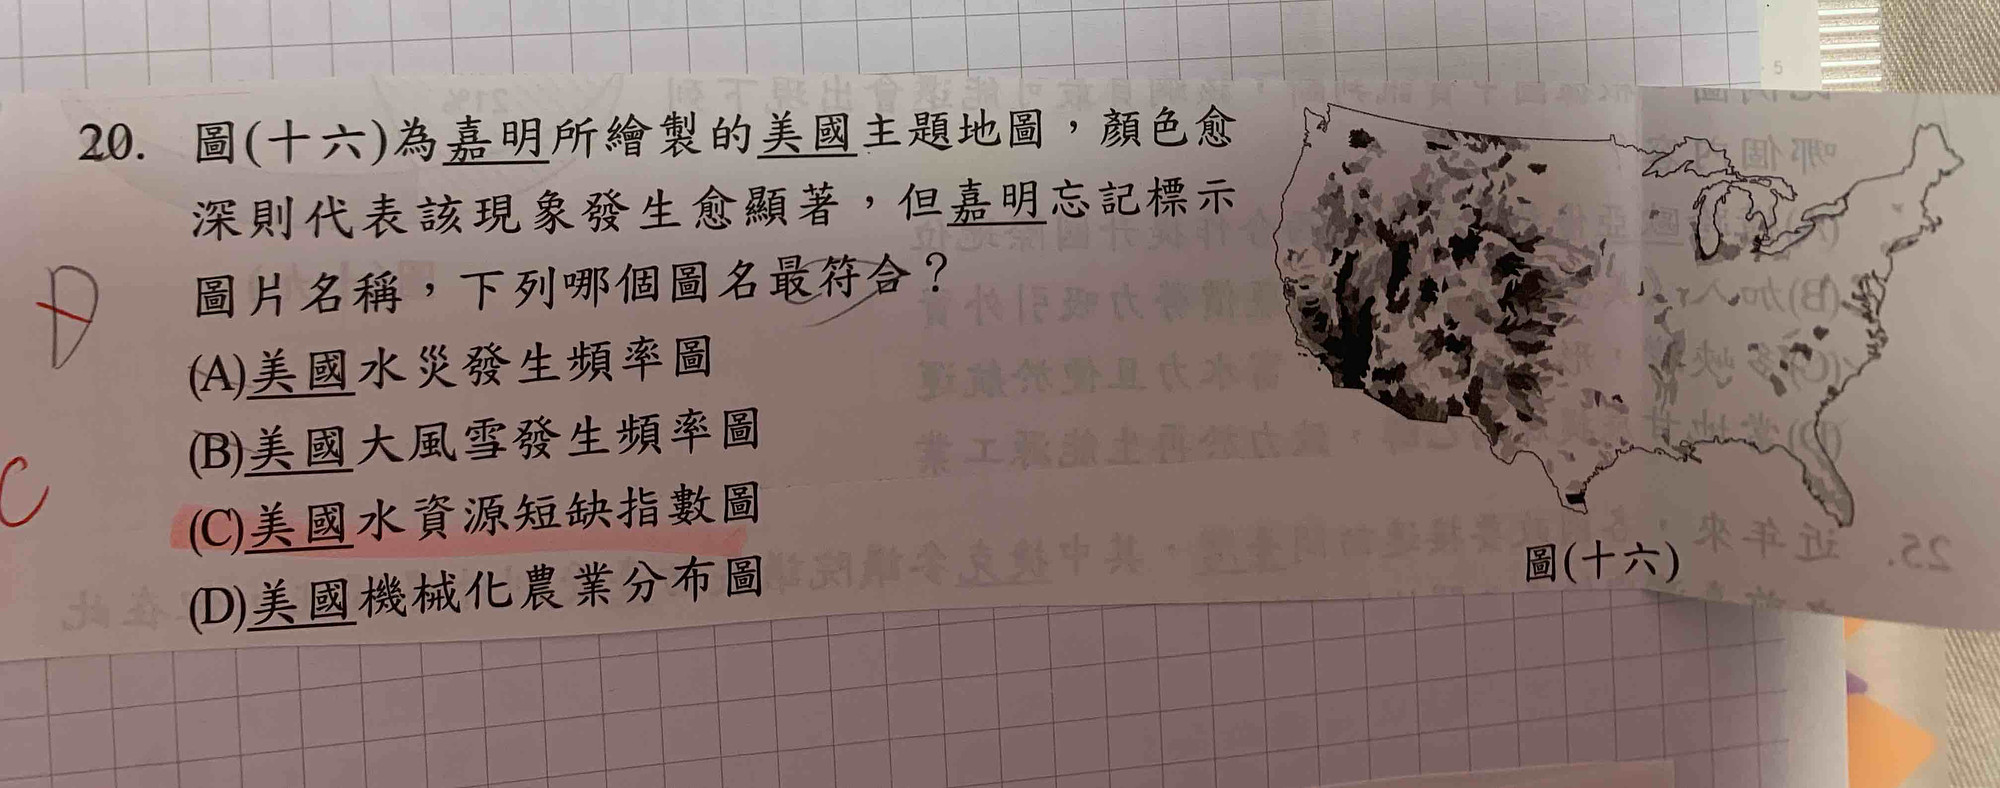 20. 圖(十六)為嘉明所繪製的美國主題地圖，顏色愈
深則代表該現象發生愈顯著，但嘉明忘記標示
圖片名稱，下列哪個圖名最符合？
(A)美國水災發生頻率圖
(B)美國大風雪發生頻率圖
(C)美國水資源短缺指數圖
(D)美國機械化農業分布圖
圖(十六)
D
C